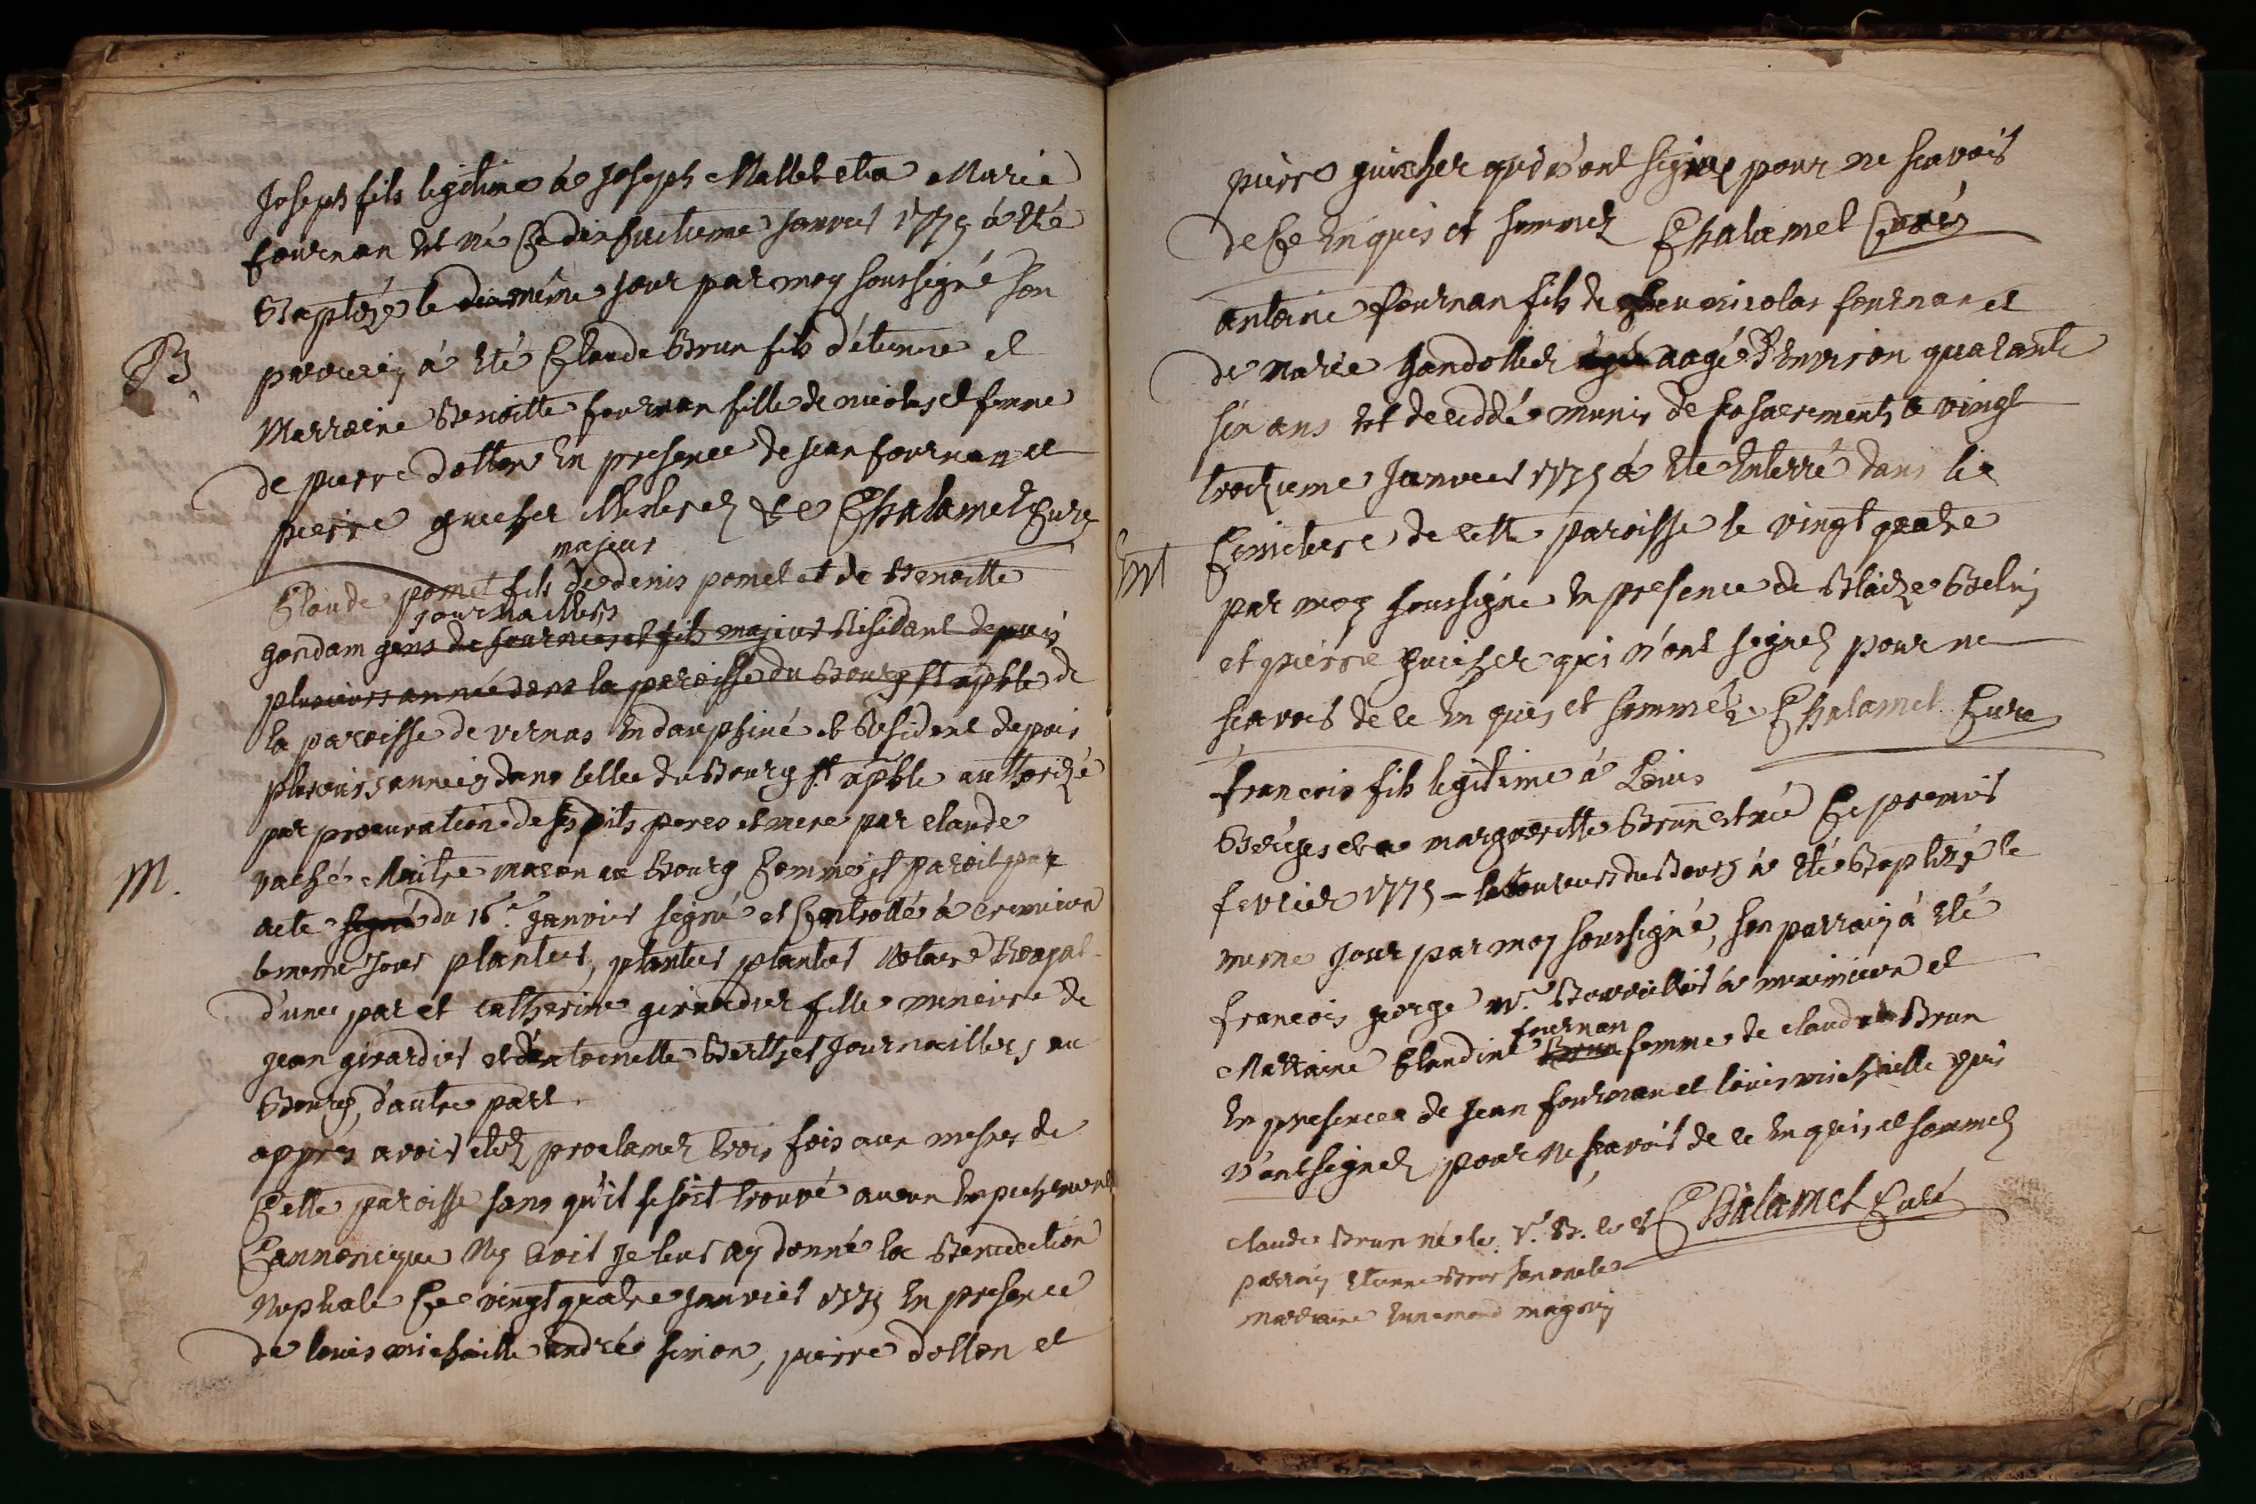 Joseph fils legitime à Joseph Mallet et à Marie
fournan est né Ce dix huitieme Janvier 1775 à eté
Baptizé le même jour par moy soussigné son
B
parrain à eté Claude Brun fils d'étienne et
Marraine Benoitte fournan fille de nicolas et femme
de pierre dollon en presence de jean fournan et
pierre guicher Chalamel Curé
majeur
Claude pomet fils de denis pomel et de Benoitte
journailliers
gondam gens de et fils majeur Residant depuis
plusieurs année dans la paroisse du Bourg st apble de
la paroisse de vernas en dauphiné et Resident depuis
plusieurs années dans celle du Bourg st apble authorizé
par procuration de ses dits peres et mere par claude
M.
vaché Maitre mason au Bourg Comme il paroit par
acte signé du 16e Janvier signé et Controllé à cremieu
le meme jour plantier, plantier plantier Notaire Royal
d'une par et catherine girardier fille mineure de
jean girardier et d'antoinette Berthet Journailliers au
Bourg, d'autre part.
apprés avoir etéz proclamez trois fois aux messes de
Cette paroisse sans qu'il se soit trouvé aucun empechement
Cannonique Ny Civil je leur ay donné la Benediction
Nuptiale Ce vingt quatre janvier 1775 en presence
de louis michaille andré simon, pierre dollon et
pierre guicher qui n'ont signe pour ne scavoir
de Ce enquis et sommez Chalamel Curé
antoine fournan fils de feu nicolas fournan et
de Marie Gandollier aagé d'environ quarante
six ans est deceddé munis de ses sacrements le vingt
troizieme Janvier 1775 à eté enterré dans le
Ent
Cimetiere de cette paroisse le vingt quatre
par moy soussigné en presence de Blaize Belin
et pierre guicher qui n'ont signez pour ne
scavoir de ce enquis et sommez. Chalamel Curé
francois fils legitime à Louis
et a margueritte Brun est né Ce premier
fevrier 1775 du Bourg à eté Baptizé le
meme jour par moy soussigné, son parrain à eté
francois george à meximieu et
fournan
Marraine Claudine Brun femme de claude Brun
en presence de jean fournan et louis michaille qui
n'ont signez pour ne scavoir de ce enquis et sommez
Chalamel Curé
claude Brun né le
parrain etienne Brun son oncle
marraine ennemonde magnin